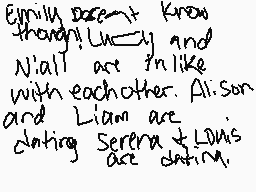 Emily Doesent know
though! and
Niall are in like
with eachother. Alison
and Liam are
dating Serena & Louis
are dating.